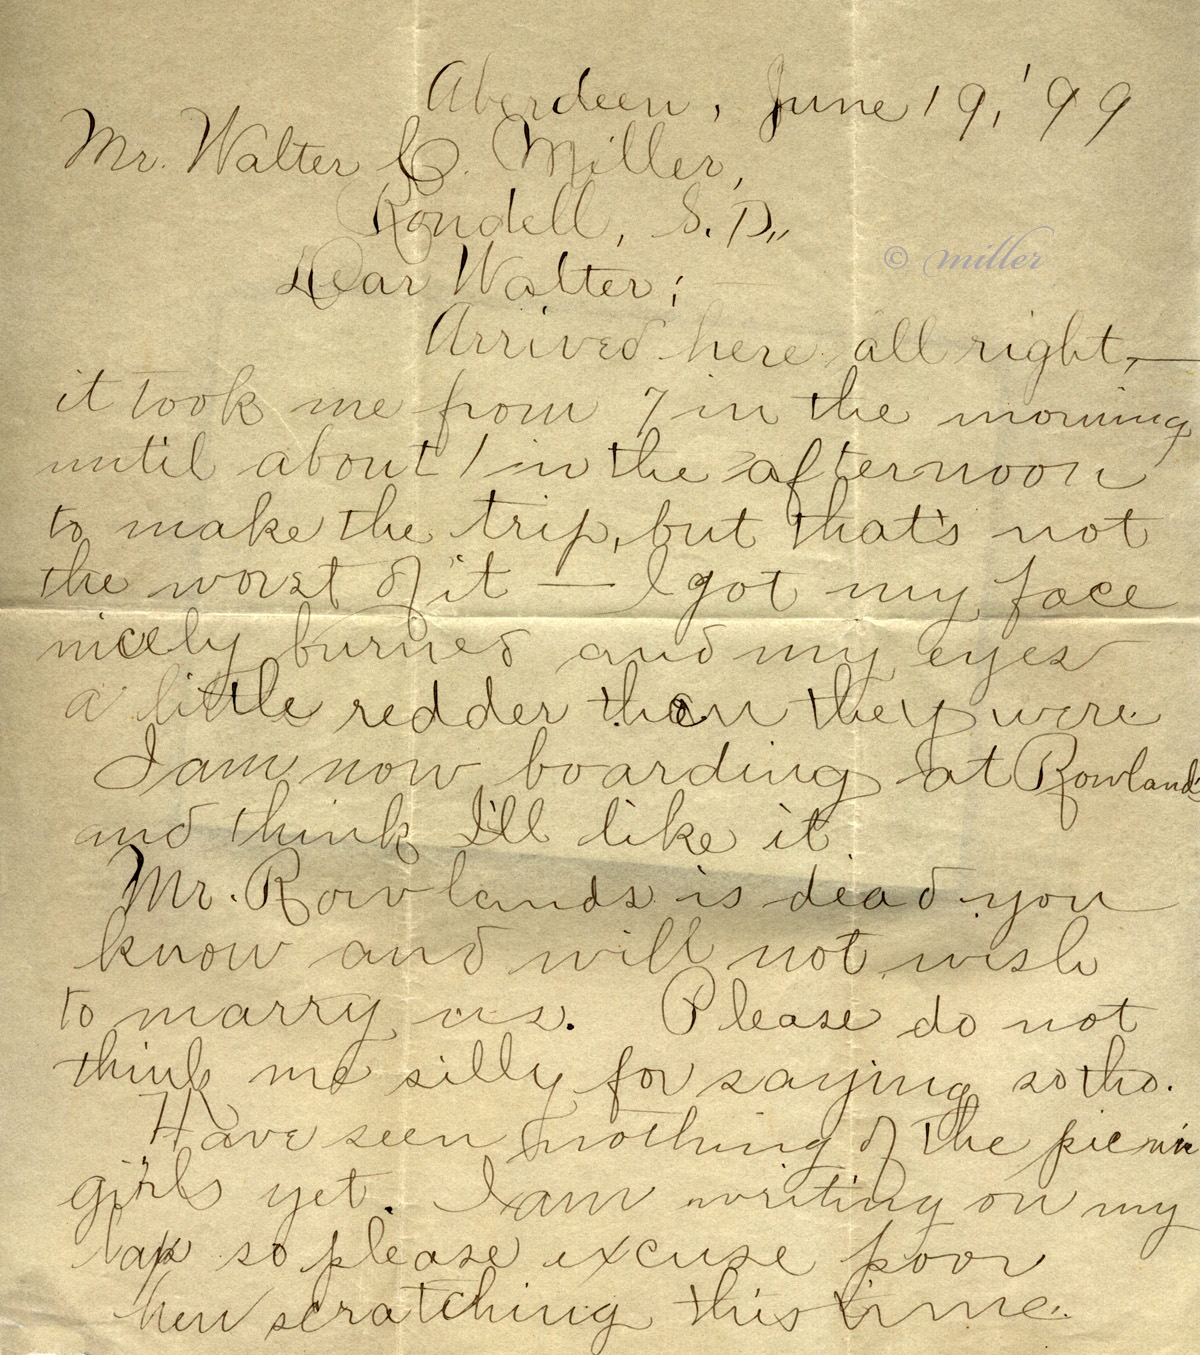 Aberdeen, June 19, '99
Mr. Walter C. Miller,
Rondell, S.D.,,
© miller
Dear Walter;
Arrived here all right, —
it took me from 7 in the morning
until about 1 in the afternoon
to make the trip, but that's not
the worst of it — I got my face
nicely burned and my eyes
a little redder than they were
I am now boarding at Rowland's
and think I'll like it
Mr. Rowlands is dead you
know and will not wish
to marry us. Please do not
think me silly for saying so tho.
Have seen nothing of the picnic
girls yet. I am writing on my
lap so please excuse poor
hen scratching this time.